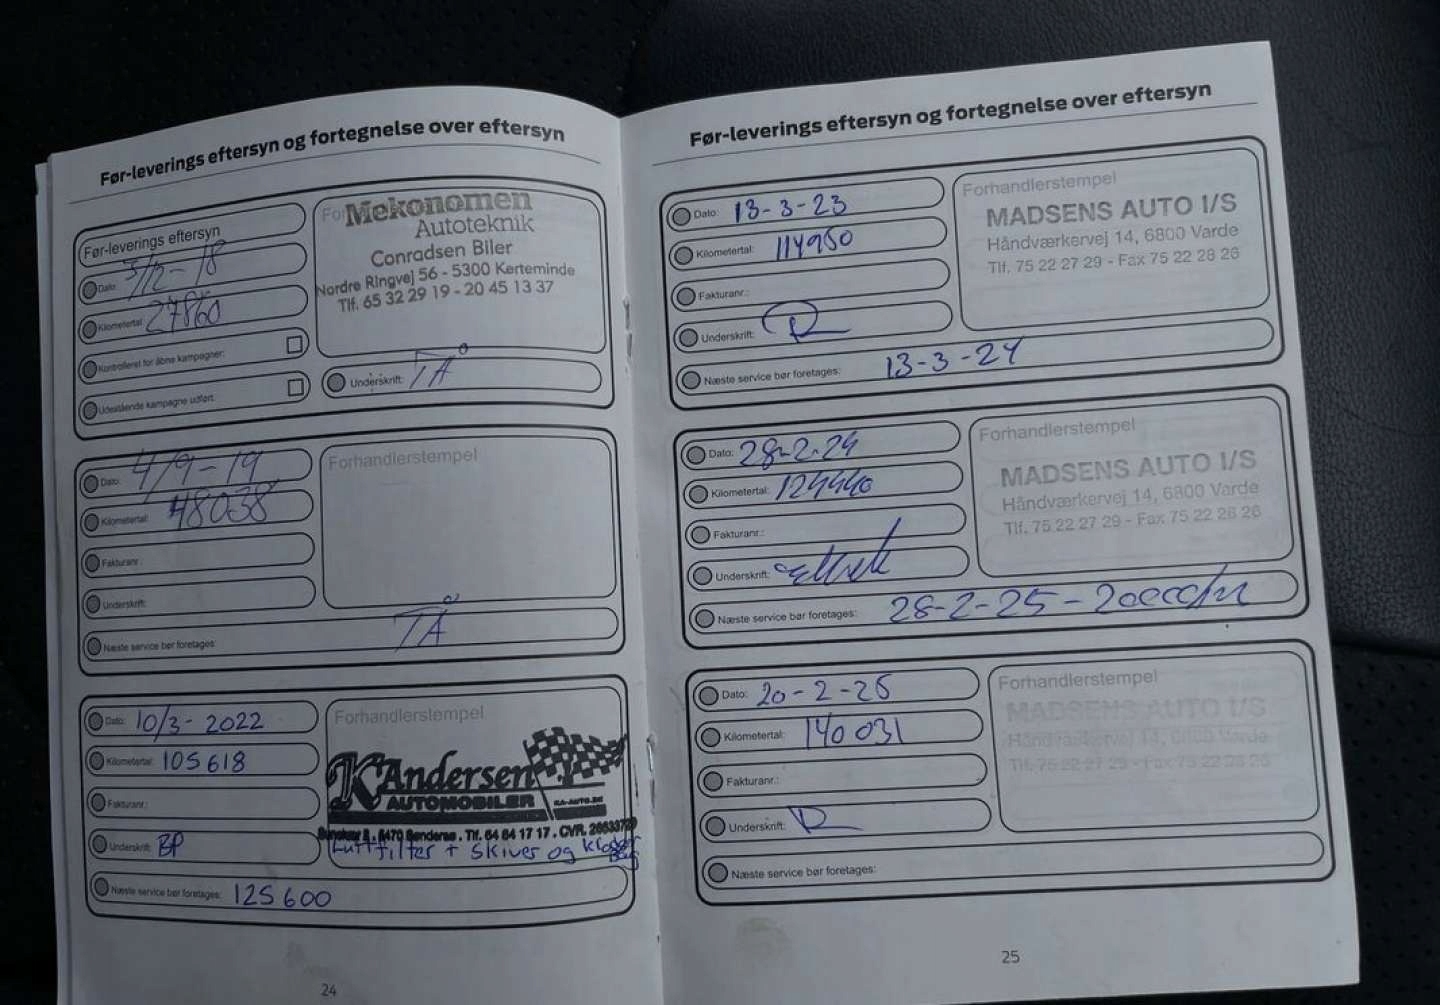 Før-leverings eftersyn og fortegnelse over eftersyn
Før-leverings eftersyn
Dato: 5/12-18
Kilometertal: 27860
Kontrolleret for åbne kampagner:
Udestående kampagne udført:
Mekonomen
Autoteknik
Conradsen Biler
Nordre Ringvej 56 - 5300 Kerteminde
Tlf. 65 32 29 19 - 20 45 13 37
Underskrift: TÅ
Dato: 4/9-19
Kilometertal: 48038
Fakturanr.:
Underskrift:
Næste service bør foretages: TÅ
Forhandlerstempel
Dato: 10/3-2022
Kilometertal: 105618
Fakturanr.:
Underskrift: BP
Næste service bør foretages: 125600
Forhandlerstempel
K Andersen
AUTOMOBILER
5470 . Tlf. 64 84 17 17 . CVR.
Luftfilter + skiver og
24
Før-leverings eftersyn og fortegnelse over eftersyn
Dato: 13-3-23
Kilometertal: 114950
Fakturanr.:
Underskrift:
Næste service bør foretages: 13-3-24
Forhandlerstempel
MADSENS AUTO I/S
Håndværkervej 14, 6800 Varde
Tlf. 75 22 27 29 - Fax 75 22 28 26
Dato: 28-2-24
Kilometertal: 124440
Fakturanr.:
Underskrift:
Næste service bør foretages: 28-2-25-20000/km
Forhandlerstempel
MADSENS AUTO I/S
Håndværkervej 14, 6800 Varde
Tlf. 75 22 27 29 - Fax 75 22 28 26
Dato: 20-2-25
Kilometertal: 140031
Fakturanr.:
Underskrift:
Næste service bør foretages:
Forhandlerstempel
MADSENS AUTO I/S
Håndværkervej 14, 6800 Varde
Tlf. 75 22 27 29 - Fax 75 22 28 26
25